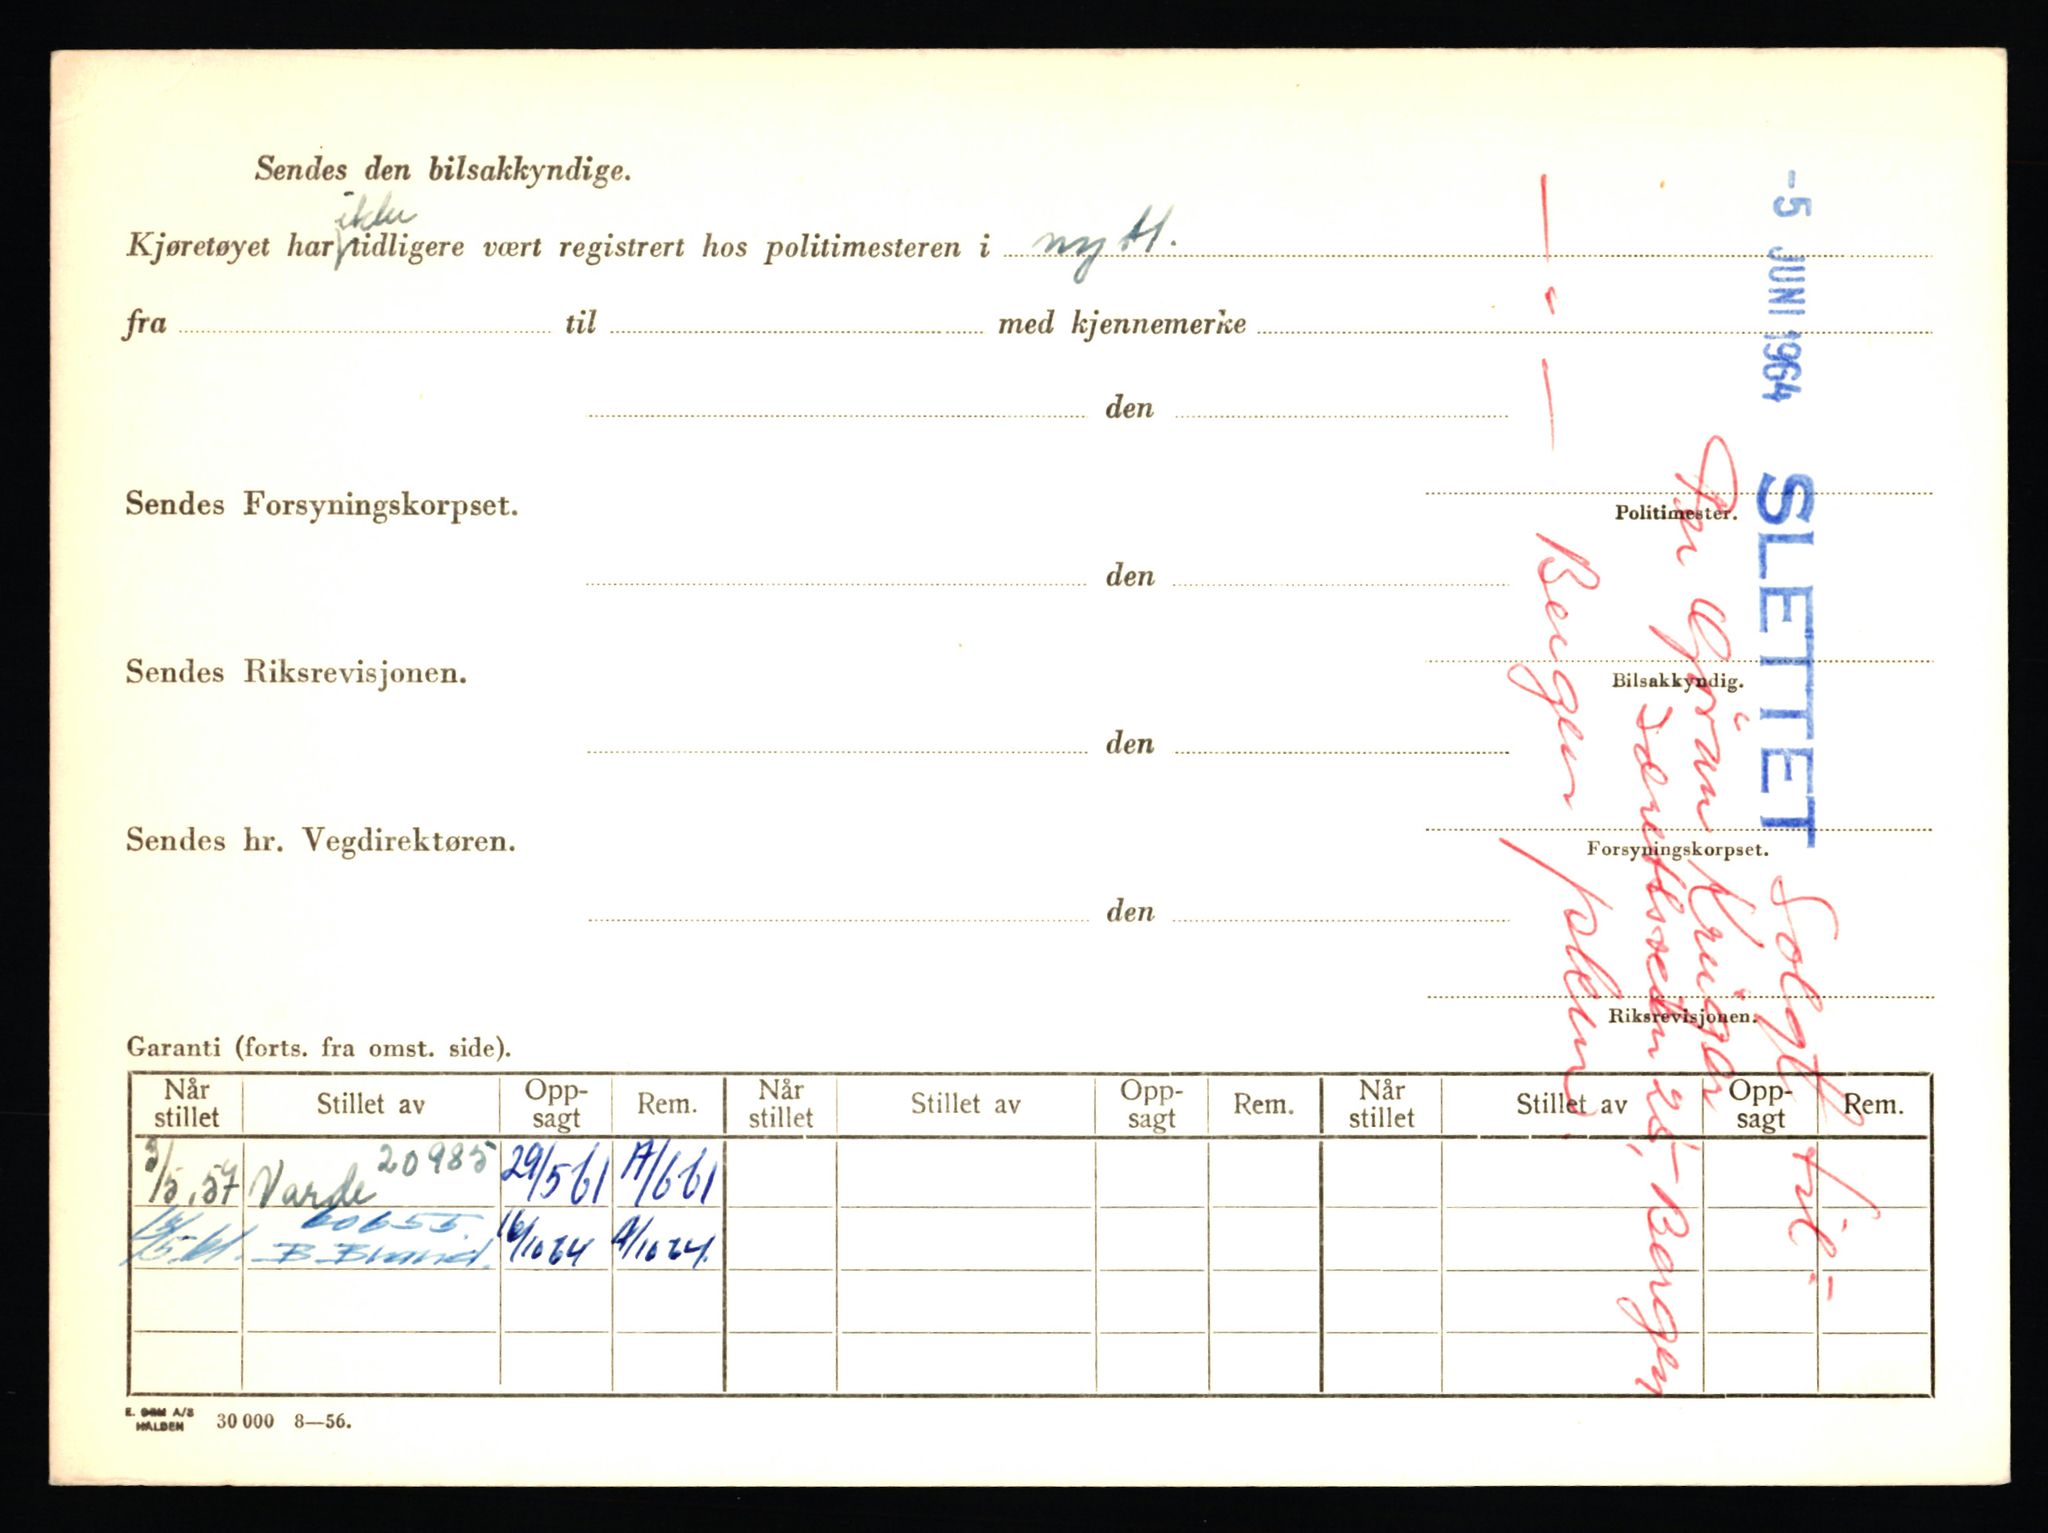 Sendes den bilsakkyndige.
ikke
Kjøretøyet har tidligere vært registrert hos politimesteren i nytt.
fra til med kjennemerke
den
Politimester.
Sendes Forsyningskorpset.
den
Bilsakkyndig.
Sendes Riksrevisjonen.
den
Forsyningskorpset.
Sendes hr. Vegdirektøren.
den
Riksrevisjonen.
Garanti (forts. fra omst. side).
Når stillet Stillet av Opp-sagt Rem. Når stillet Stillet av Opp-sagt Rem. Når stillet Stillet av Opp-sagt Rem.
3/5.57 Varde 20985 29/5 61 /6 61
/5.61. 60655 B. Brand. 16/10 64 /10 64.
E. SEM A/S
HALDEN
30 000 8—56.
-5 JUNI 1964 SLETTET Solgt til -
Göran Krüger
Idrettsveien 25, Borgen
— " — Borgen